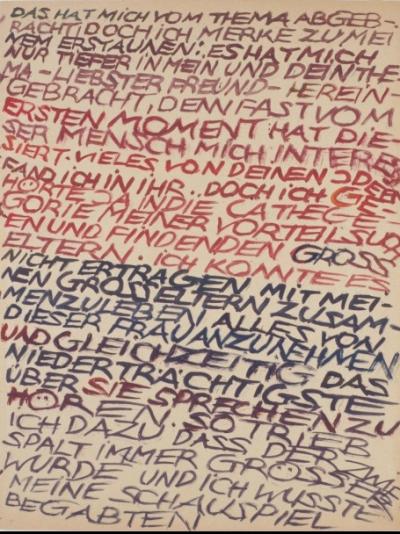 DAS HAT MICH VOM THEMA ABGEB-
RACHT, DOCH ICH MERKE ZU MEI
NEM ERSTAUNEN: ES HAT MICH
NUR TIEFER IN MEIN UND DEIN THE-
MA - LIEBSTER FREUND - HEREIN-
GEBRACHT, DENN FAST VOM
ERSTEN MOMENT HAT DIE-
SER MENSCH MICH INTERES
SIERT. VIELES VON DEINEN IDEEN
FAND ICH IN IHR. DOCH ICH GE-
HÖRTE JA IN DIE CATHEGE
GORIE MEINER VORTEIL SUCH
EN UND FINDENDEN GROSS
ELTERN. ICH KONNTE ES
NICHT ERTRAGEN MIT MEI-
NEN GROSSELTERN ZUSAM-
MENZULEBEN ALLES VON
DIESER FRAU ANZUNEHMEN
UND GLEICHZEITIG DAS
NIEDERTRÄCHTIGSTE
ÜBER SIE SPRECHEN ZU
HÖREN. SO TRIEB
ICH DAZU, DASS DER ZWIE
SPALT IMMER GRÖSSER
WURDE UND ICH WUSSTE
MEINE SCHAUSPIEL
BEGABTEN